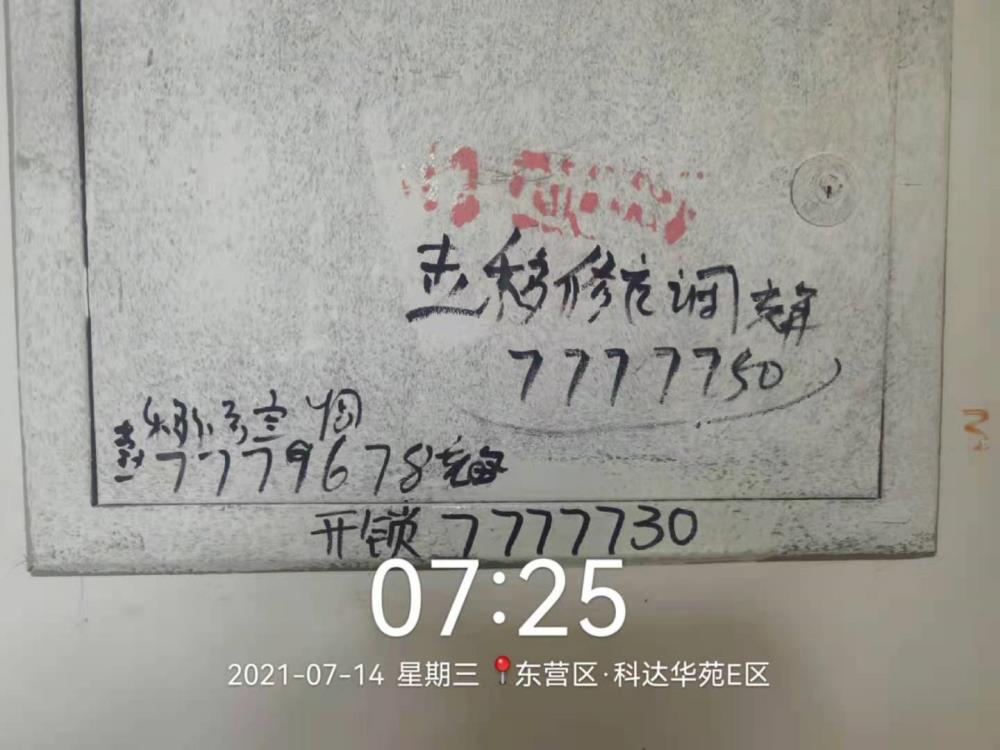 移修空调充氟
7777750
空调
7779678充氟
开锁7777730
07:25
2021-07-14 星期三 东营区·科达华苑E区